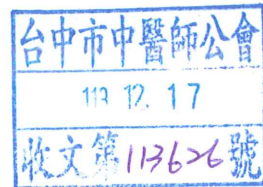 台中市中醫師公會
113.12.17
收文第113626號